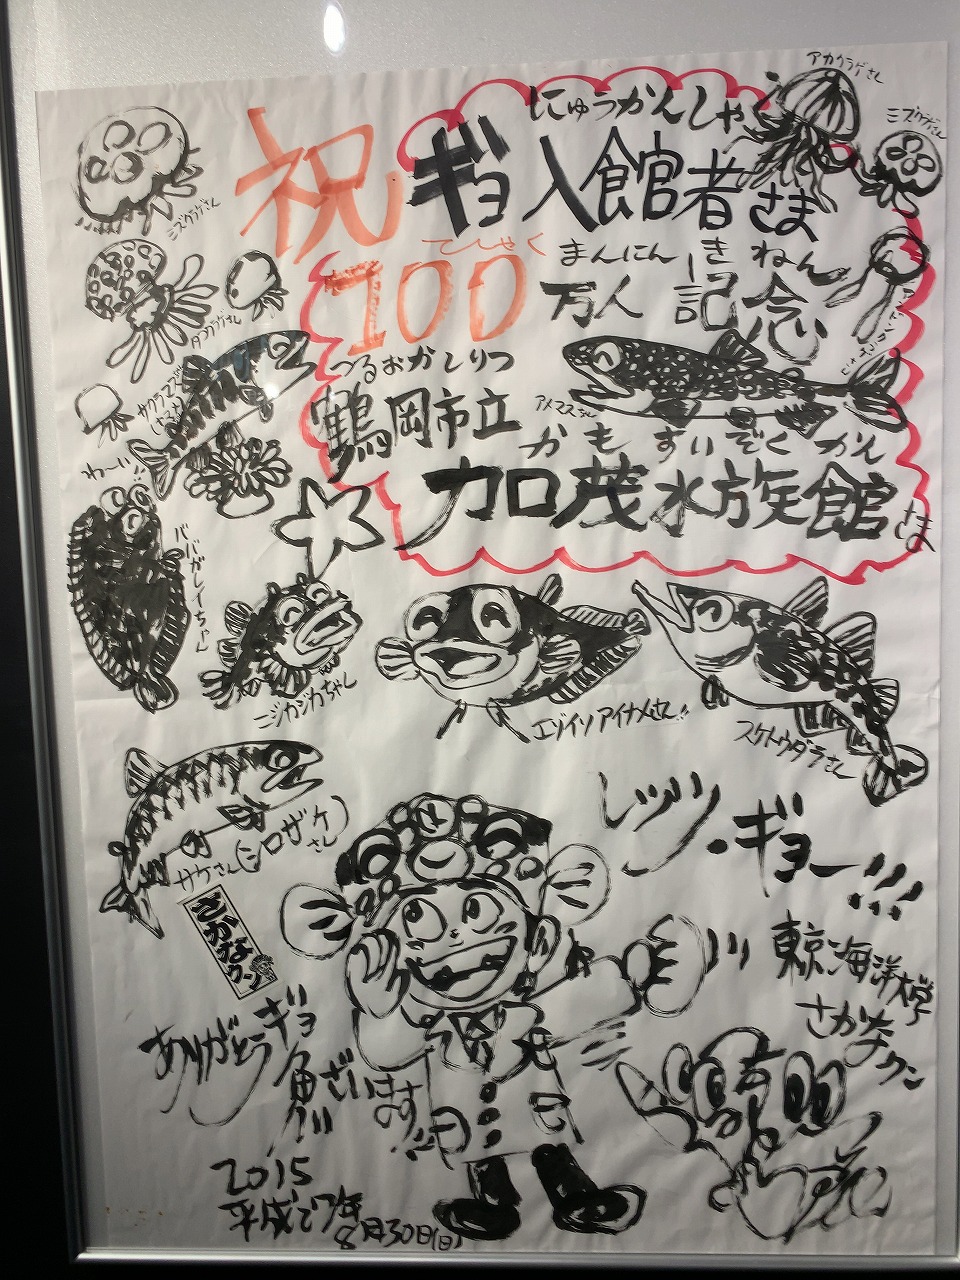 アカクラゲさん
ミズクラゲさん
ミズクラゲさん
祝
にゅうかんしゃ
ギョ入館者さま
てしゃく
まんにん きねん
100万人 記念
タコクラゲさん
サクラマスさん
つるおかしりつ
鶴岡市立
アメマスさん
かもすいぞくかん
加茂水族館さま
わ～い
ババガレイちゃん
ニジカジカちゃん
エゾイソアイナメさん!!
スケトウダラさん
サケさん(シロザケさん)
レッツ・ギョー!!!
さかなクン
東京海洋大学
さかなクン
ありがとうギョ
魚ざいます!!
2015
平成27年
8月30日(日)